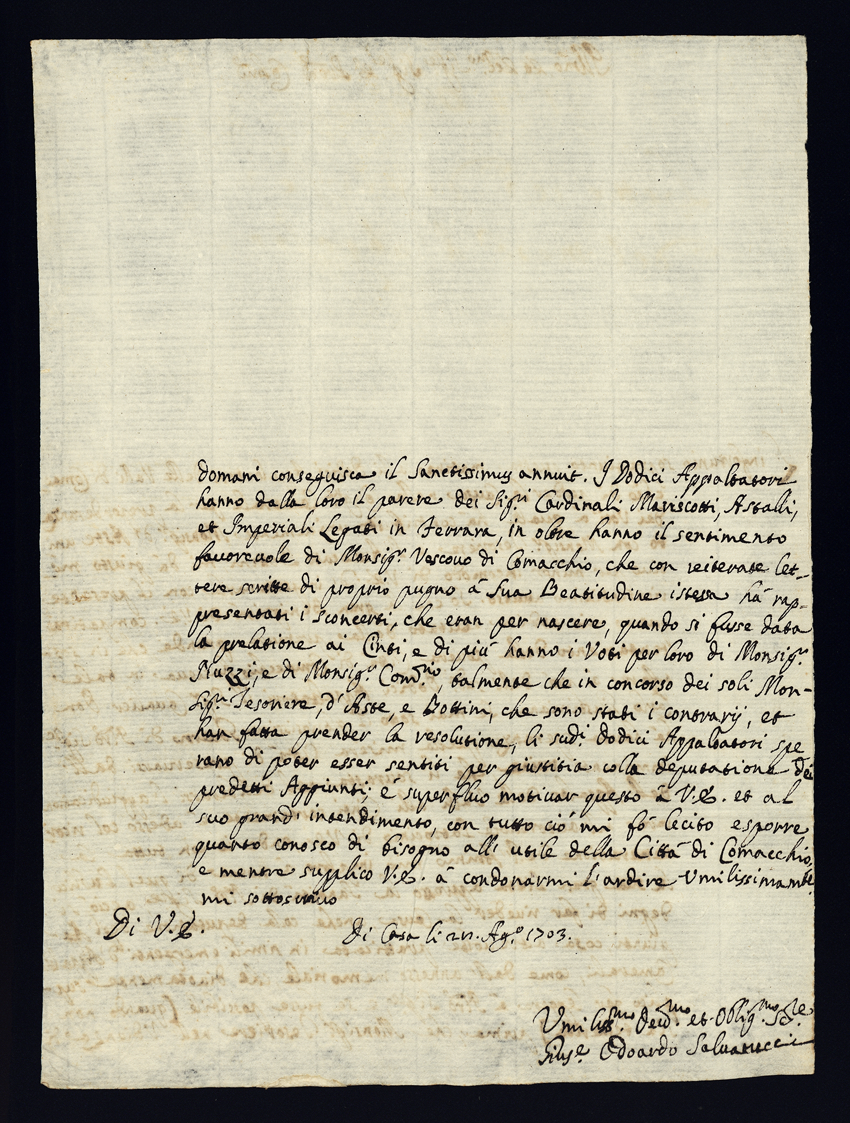 domani conseguisca il Sanctissimus annuit. I Dodici Appaltatori
hanno dalla loro il parere dei Sig.ri Cardinali Mariscotti, Astalli,
et Imperiali Legati in Ferrara, in oltre hanno il sentimento
favorevole di Monsig.r Vescovo di Comacchio, che con reiterate let-
tere scritte di proprio pugno à Sua Beatitudine istessa hà rap-
presentati i sconcerti, che eran per nascere, quando si fusse data
la prelatione ai Cinti, e di più hanno i Voti per loro di Monsig.r
Nuzzi, e di Monsig.r Com.rio, talmente che in concorso dei soli Mon-
sig.ri Tesoriere, d'Aste, e Bottini, che sono stati i contrarij, et
han fatta prender la resolutione, li sud.i Dodici Appaltatori spe
rano di poter esser sentiti per giustitia colla deputatione dei
predetti Aggiunti; è superfluo motivar questo à V.E. et al
suo grand' intendimento, con tutto ciò mi fò lecito esporre
quanto conosco di bisogno all' utile della Città di Comacchio,
e mentre supplico V.E. à condonarmi l'ardire Umilissimam.te
mi sottoscrivo
Di V.E.
Di Casa li Ag.o 1703.
Umiliss.mo Dev.mo et Oblig.mo
Odoardo Salvatucci